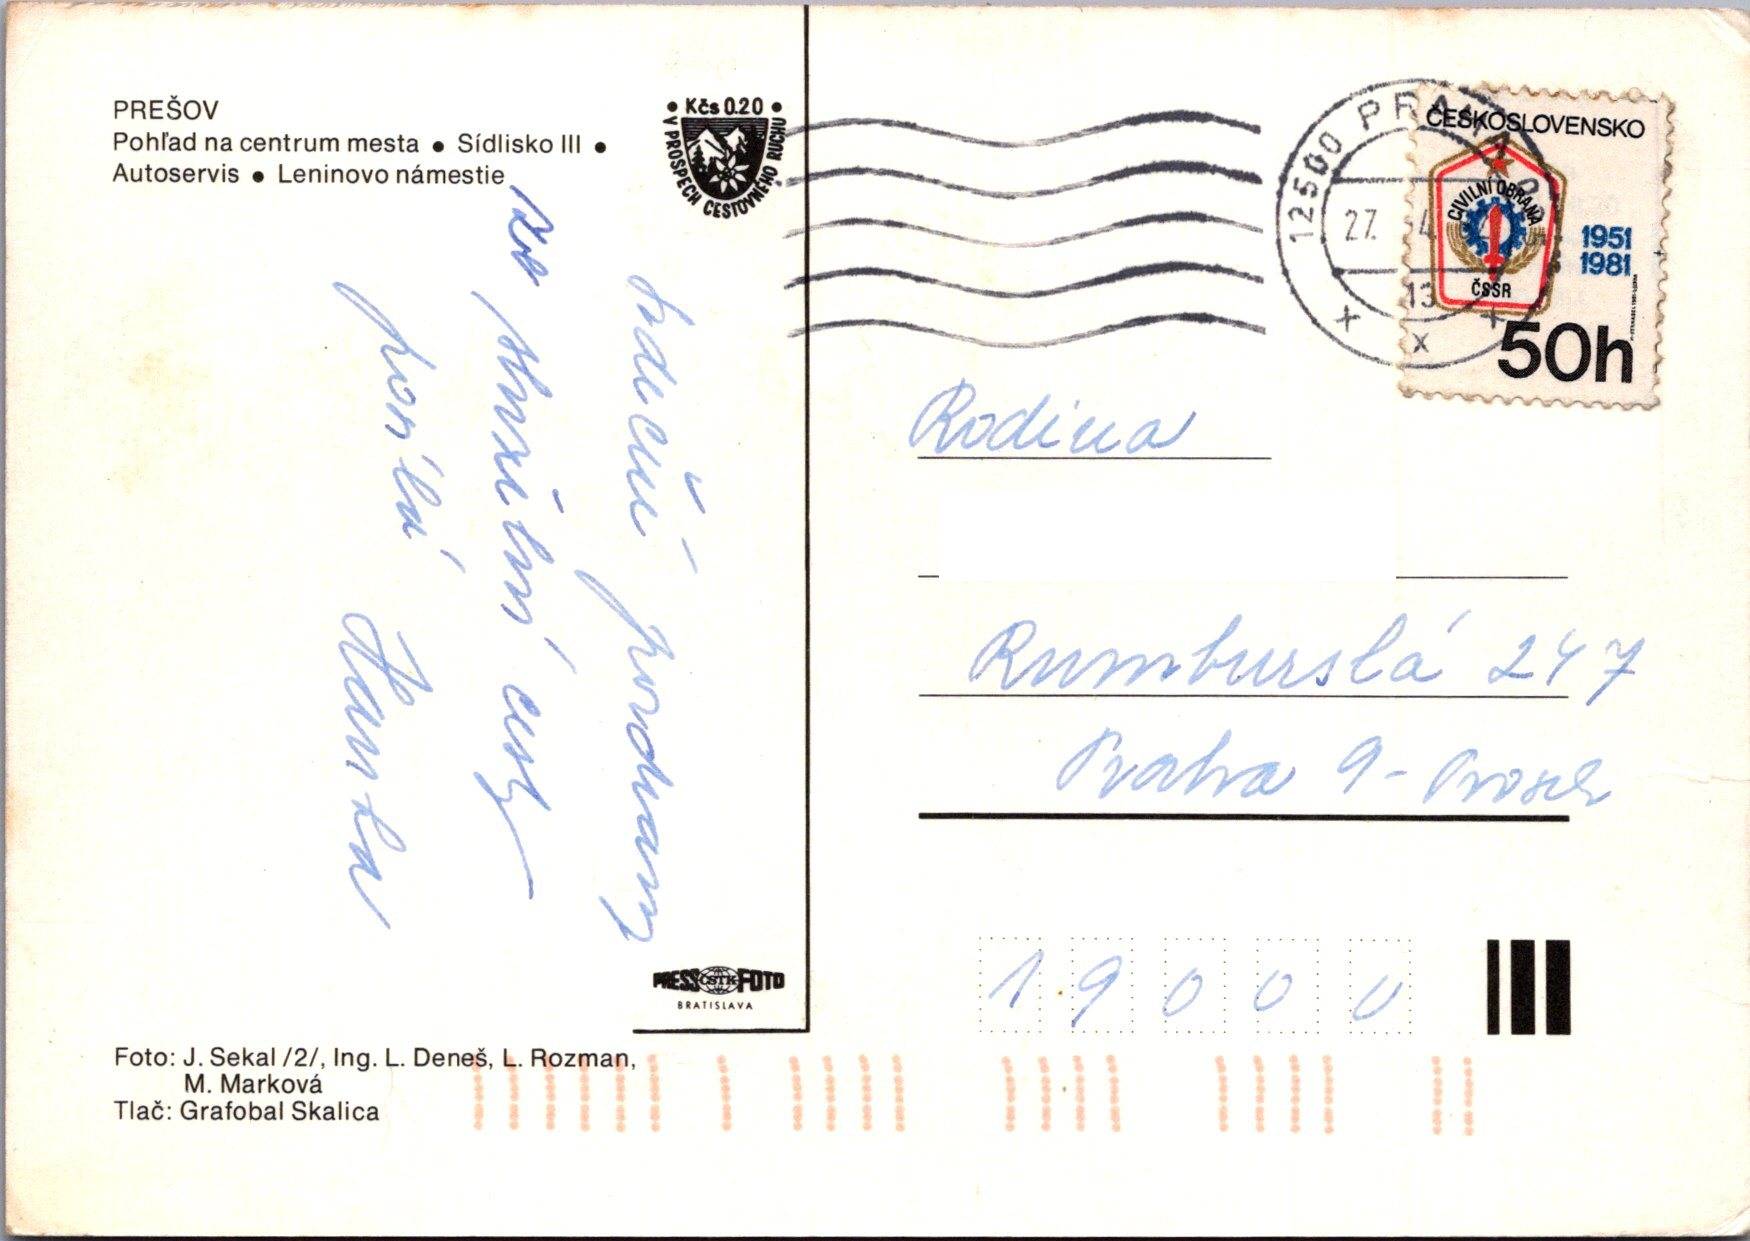 PREŠOV
Pohľad na centrum mesta ● Sídlisko III ●
Autoservis ● Leninovo námestie
● Kčs 0.20 ●
V PROSPECH CESTOVNÉHO RUCHU
12500 PRAHA
27. 4.
13
x x x
ČESKOSLOVENSKO
CIVILNÍ OBRANA
ČSSR
1951
1981
50h
Srdečný pozdrav
ze služební cesty
posílá Hanka
Rodina
Rumburská 247
Praha 9 - Prosek
19000
PRESS ČSTK FOTO
BRATISLAVA
Foto: J. Sekal /2/, Ing. L. Deneš, L. Rozman,
M. Marková
Tlač: Grafobal Skalica